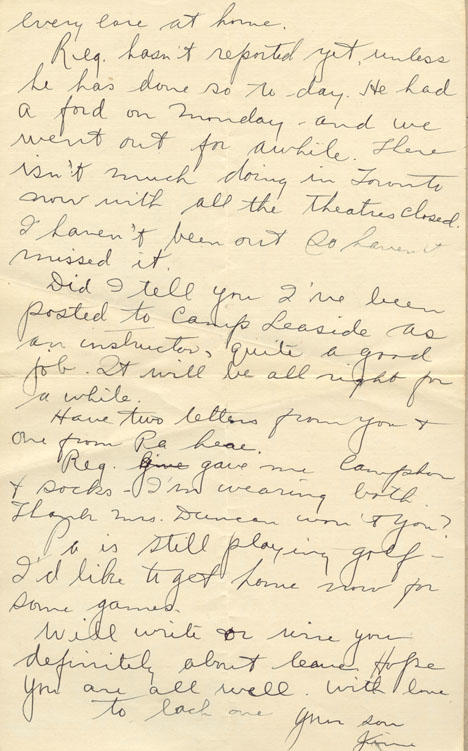 every care at home.
Reg. hasn't reported yet, unless
he has done so to-day. He had
a ford on Monday - and we
went out for awhile. There
isn't much doing in Toronto
now with all the theatres closed.
I haven't been out so haven't
missed it.
Did I tell you I've been
posted to Camp Leaside as
an instructor, quite a good
job. It will be all right for
a while.
Have two letters from you &
one from Pa here.
Reg. gave me
& socks - I'm wearing both.
Thank Mrs. Duncan won't you?
Pa is still playing golf -
I'd like to get home now for
some games.
Will write or wire you
definitely about leave. Hope
you are all well. With love
to each one
Your son